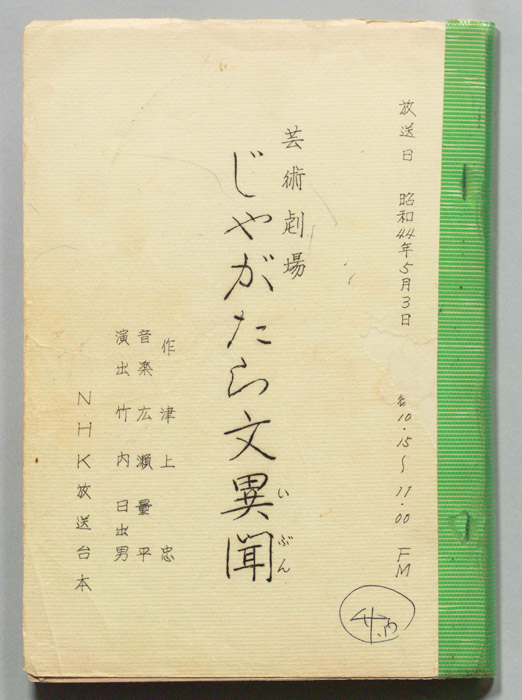 放送日 昭和44年5月3日
10.15～11.00 FM
芸術劇場
じゃがたら文異聞
いぶん
作 津上 忠
音楽 広瀬量平
演出 竹内日出男
NHK放送台本